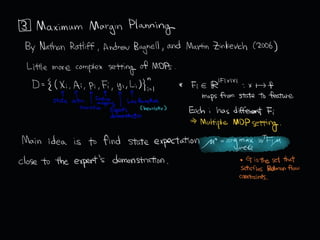 3 Maximum Margin Planning
By Nathan Ratliff, Andrew Bagnell, and Martin Zinkevich (2006)
Little more complex setting of MDPs.
D = {(Xi, Ai, Pi, Fi, yi, Li)}i=1^n
state
action
feature mapping
expert's demonstration
loss function
(heuristic)
* Fi ∈ : x ↦ f
maps from state to feature
Each i has different Fi
→ Multiple MDP setting.
Main idea is to find state expectation μ* = argmax
close to the expert's demonstration.
* G is the set that
satisfies Bellman flow
constraints.